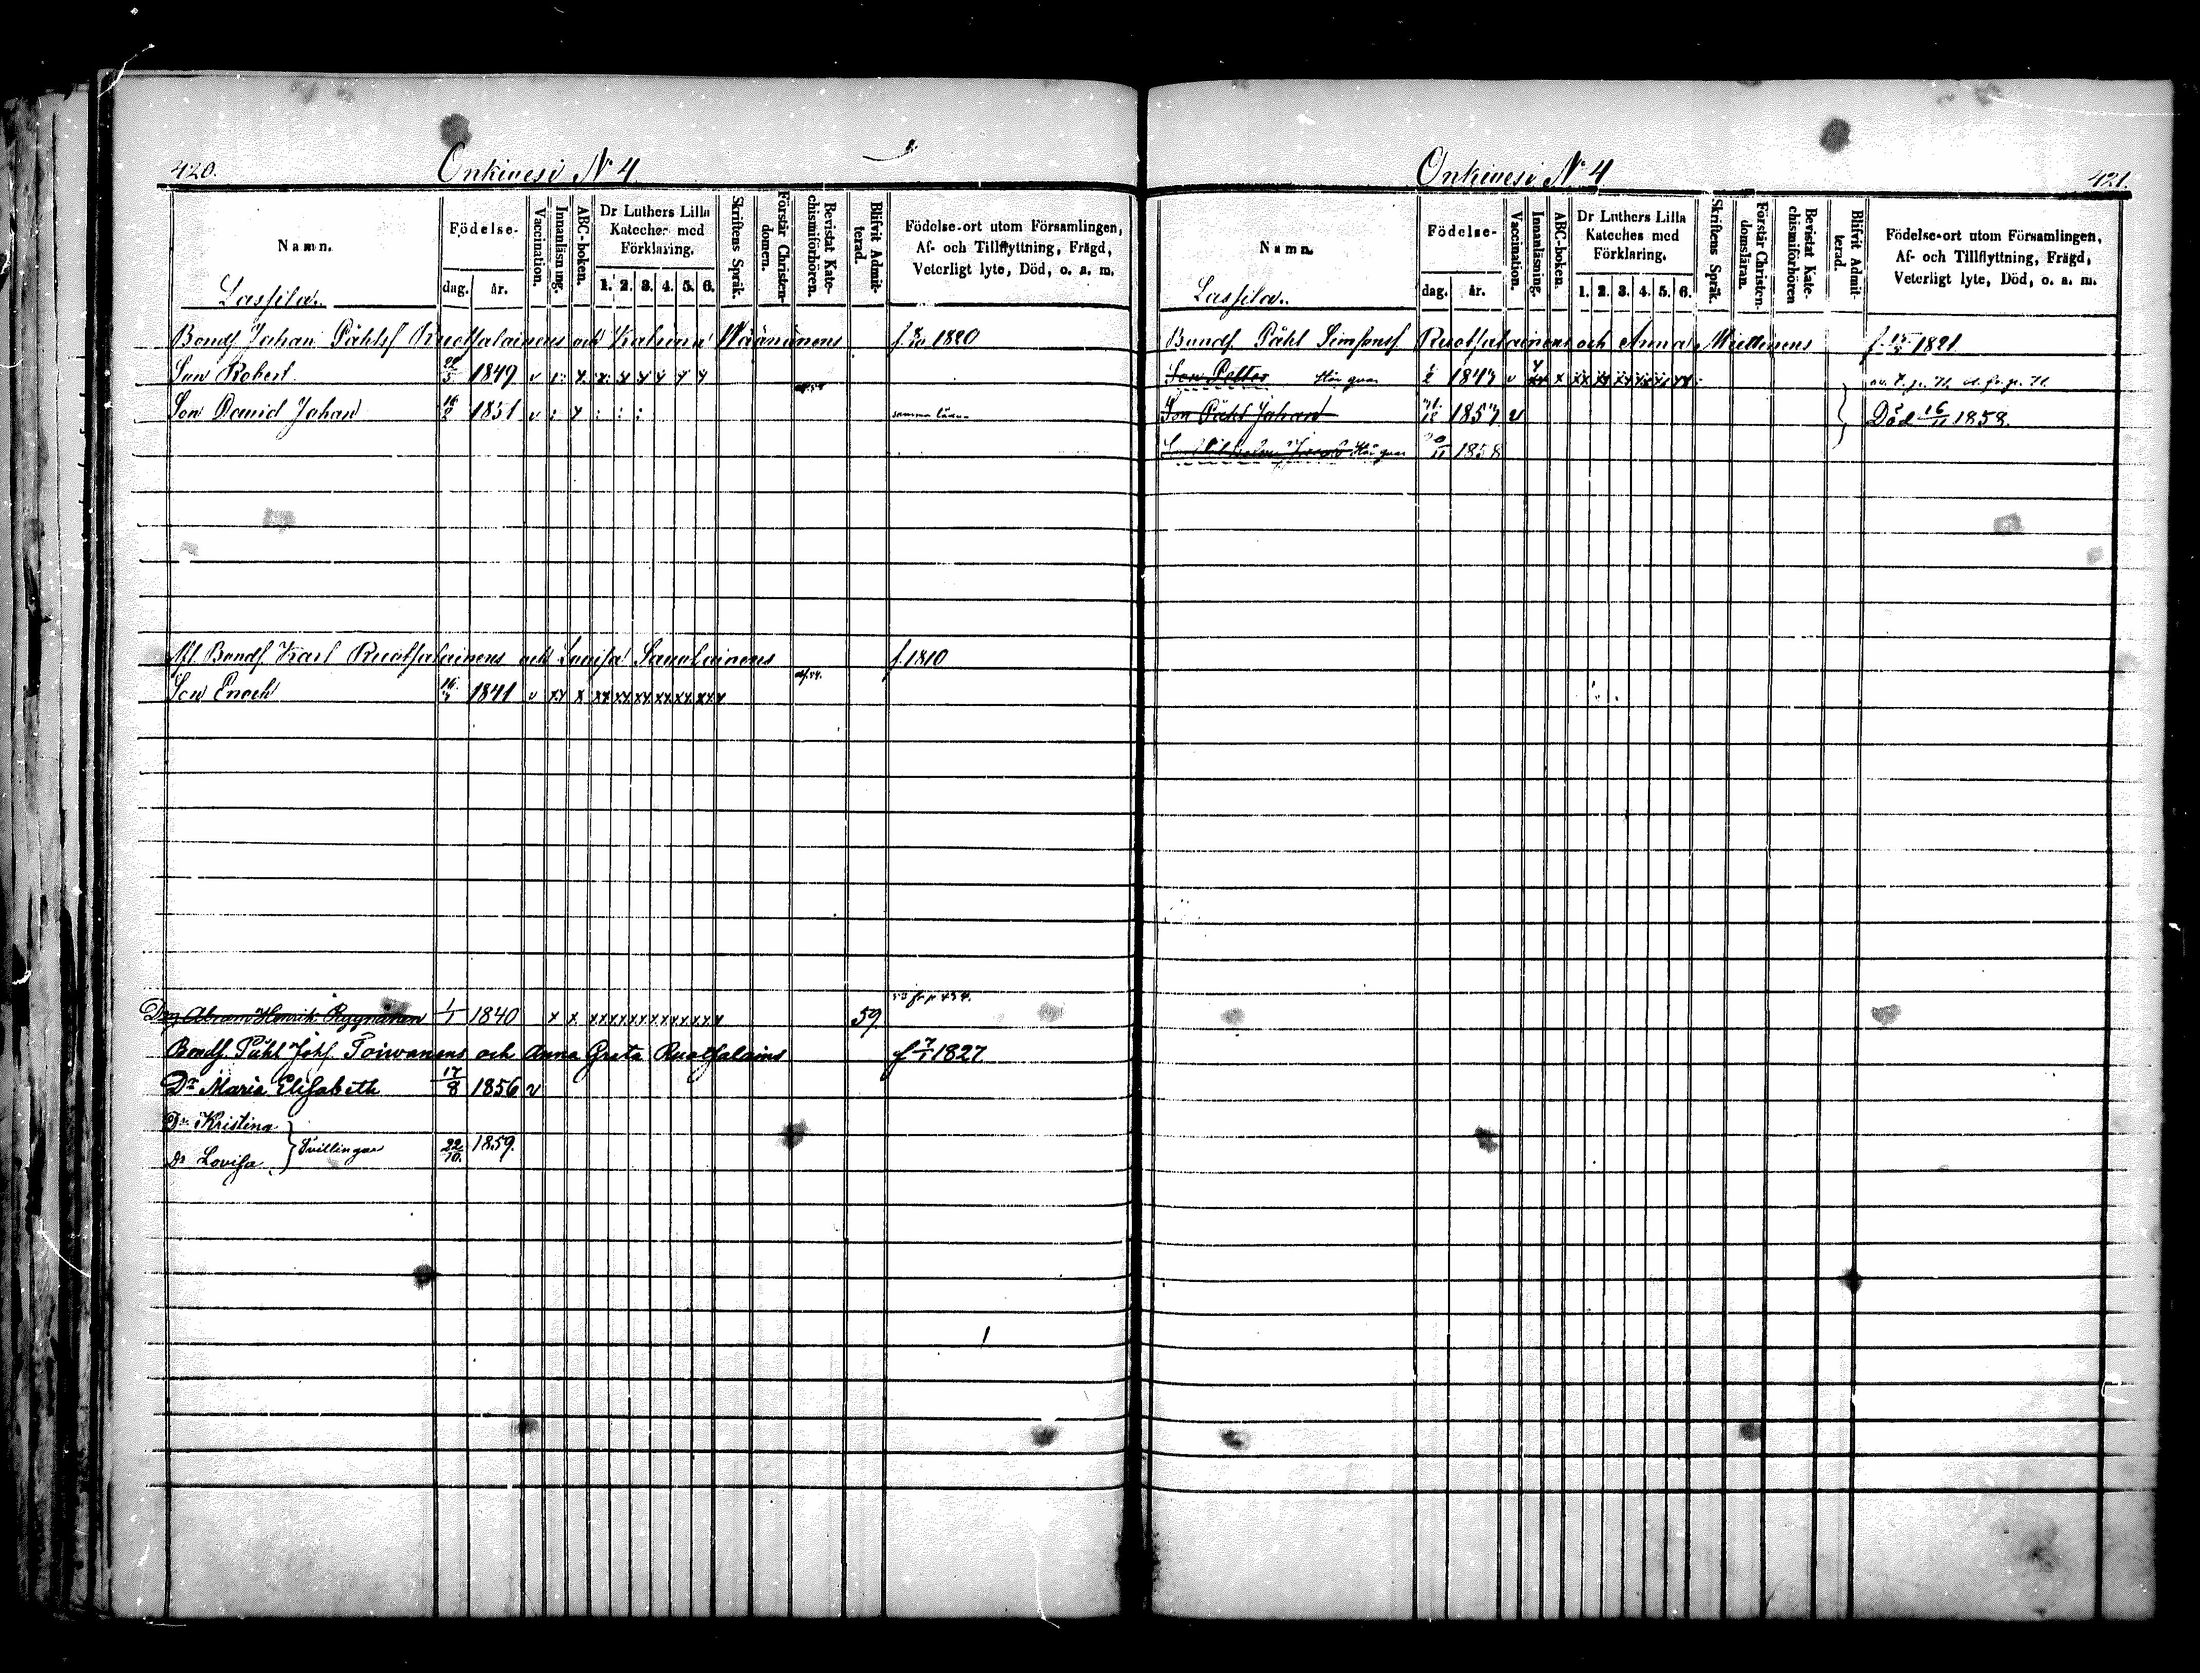 420. Onkivesi No 4
Namn. Födelse- Vaccination. Innanläsning. ABC-boken. Dr Luthers Lilla Kateches med Förklaring. Skriftens Språk. Förstår Christendomen. Bevistat Katechismiförhören. Blifvit Admitterad. Födelse-ort utom Församlingen, Af- och Tillflyttning, Frägd, Veterligt lyte, Död, o. a. m.
Lassila. dag. år. 1. 2. 3. 4. 5. 6.
Bondf Johan Påhlsf Ruotsalainens och Katrina Wäänänens f. 1820
Son Robert 22/5 1849 v
Son David Johan 1851 v
Afl Bondf Karl Ruotsalainens och Lovisa Savolainens f. 1810
Son Enoch 1841 v xx x xx xx xx xx xx xxx
Abram Henrik Ryynänen 1/1 1840 x x xxxxxxxxxxxxx 59
Bondf. Påhl Johf. Toivanens och Anna Greta Ruotsalains f 7/1 1827
Dr Maria Elisabeth 17/8 1856 v
Dr Kristina
Tvillingar 22/10. 1859.
Dr Lovisa
Onkivesi No 4 421.
Namn. Födelse- Vaccination. Innanläsning. ABC-boken. Dr Luthers Lilla Kateches med Förklaring. Skriftens Språk. Förstår Christendomsläran. Bevistat Katechismiförhören Blifvit Admitterad. Födelse-ort utom Församlingen, Af- och Tillflyttning, Frägd, Veterligt lyte, Död, o. a. m.
Lassila. dag. år. 1. 2. 3. 4. 5. 6.
Bondf. Påhl Simonsf Ruotsalainens och Anna Miettinens 1821
Son Petter Här qvar 1843 v
Son Påhl Johan 1857 v Död 16/11 1858.
Här qvar 1858